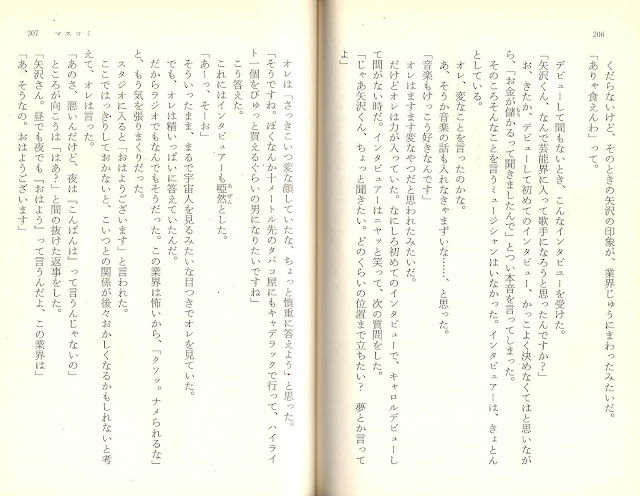 206
くだらないけど、そのときの矢沢の印象が、業界じゅうにまわったみたいだ。
「ありゃ食えんわ」って。
デビューして間もないとき、こんなインタビューを受けた。
「矢沢くん、なんで芸能界に入って歌手になろうと思ったんですか?」
お、きたか、デビューして初めてのインタビュー、かっこよく決めなくてはと思いなが
ら、「お金が儲かるって聞きましたんで」とつい本音を言ってしまった。
そのころそんなことを言うミュージシャンはいなかった。インタビュアーは、きょとん
としている。
オレ、変なことを言ったのかな。
あ、そうか音楽の話も入れなきゃまずいな……、と思った。
「音楽もけっこう好きなんです」
オレはますます変なやつだと思われたみたいだ。
だけどオレは力が入っていた。なにしろ初めてのインタビューで、キャロルデビューし
て間がない時だ。インタビュアーはニヤッと笑って、次の質問をした。
「じゃあ矢沢くん、ちょっと聞きたい。どのくらいの位置まで立ちたい? 夢とか言って
よ」
207 マスコミ
オレは「さっきこいつ変な顔していたな、ちょっと慎重に答えよう」と思った。
「そうですね。ぼくなんか十メートル先のタバコ屋にもキャデラックで行って、ハイライ
ト一個をぴゅっと買えるぐらいの男になりたいですね」
こう答えた。
これにはインタビュアーも唖然とした。
「あーっ、そーお」
そういったまま、まるで宇宙人を見るみたいな目つきでオレを見ていた。
でも、オレは精いっぱいに答えていたんだ。
だからラジオでもなんでもそうだった。この業界は怖いから、「クソッ。ナメられるな」
と、もう気を張りまくりだった。
スタジオに入ると「おはようございます」と言われた。
ここではっきりしておかないと、こいつとの関係が後々おかしくなるかもしれないと考
えて、オレは言った。
「あのさ、悪いんだけど、夜は『こんばんは』って言うんじゃないの」
ところが向こうは「はあ?」と間の抜けた返事をした。
「矢沢さん。昼でも夜でも『おはよう』って言うんだよ、この業界は」
「あ、そうなの。おはようございます」